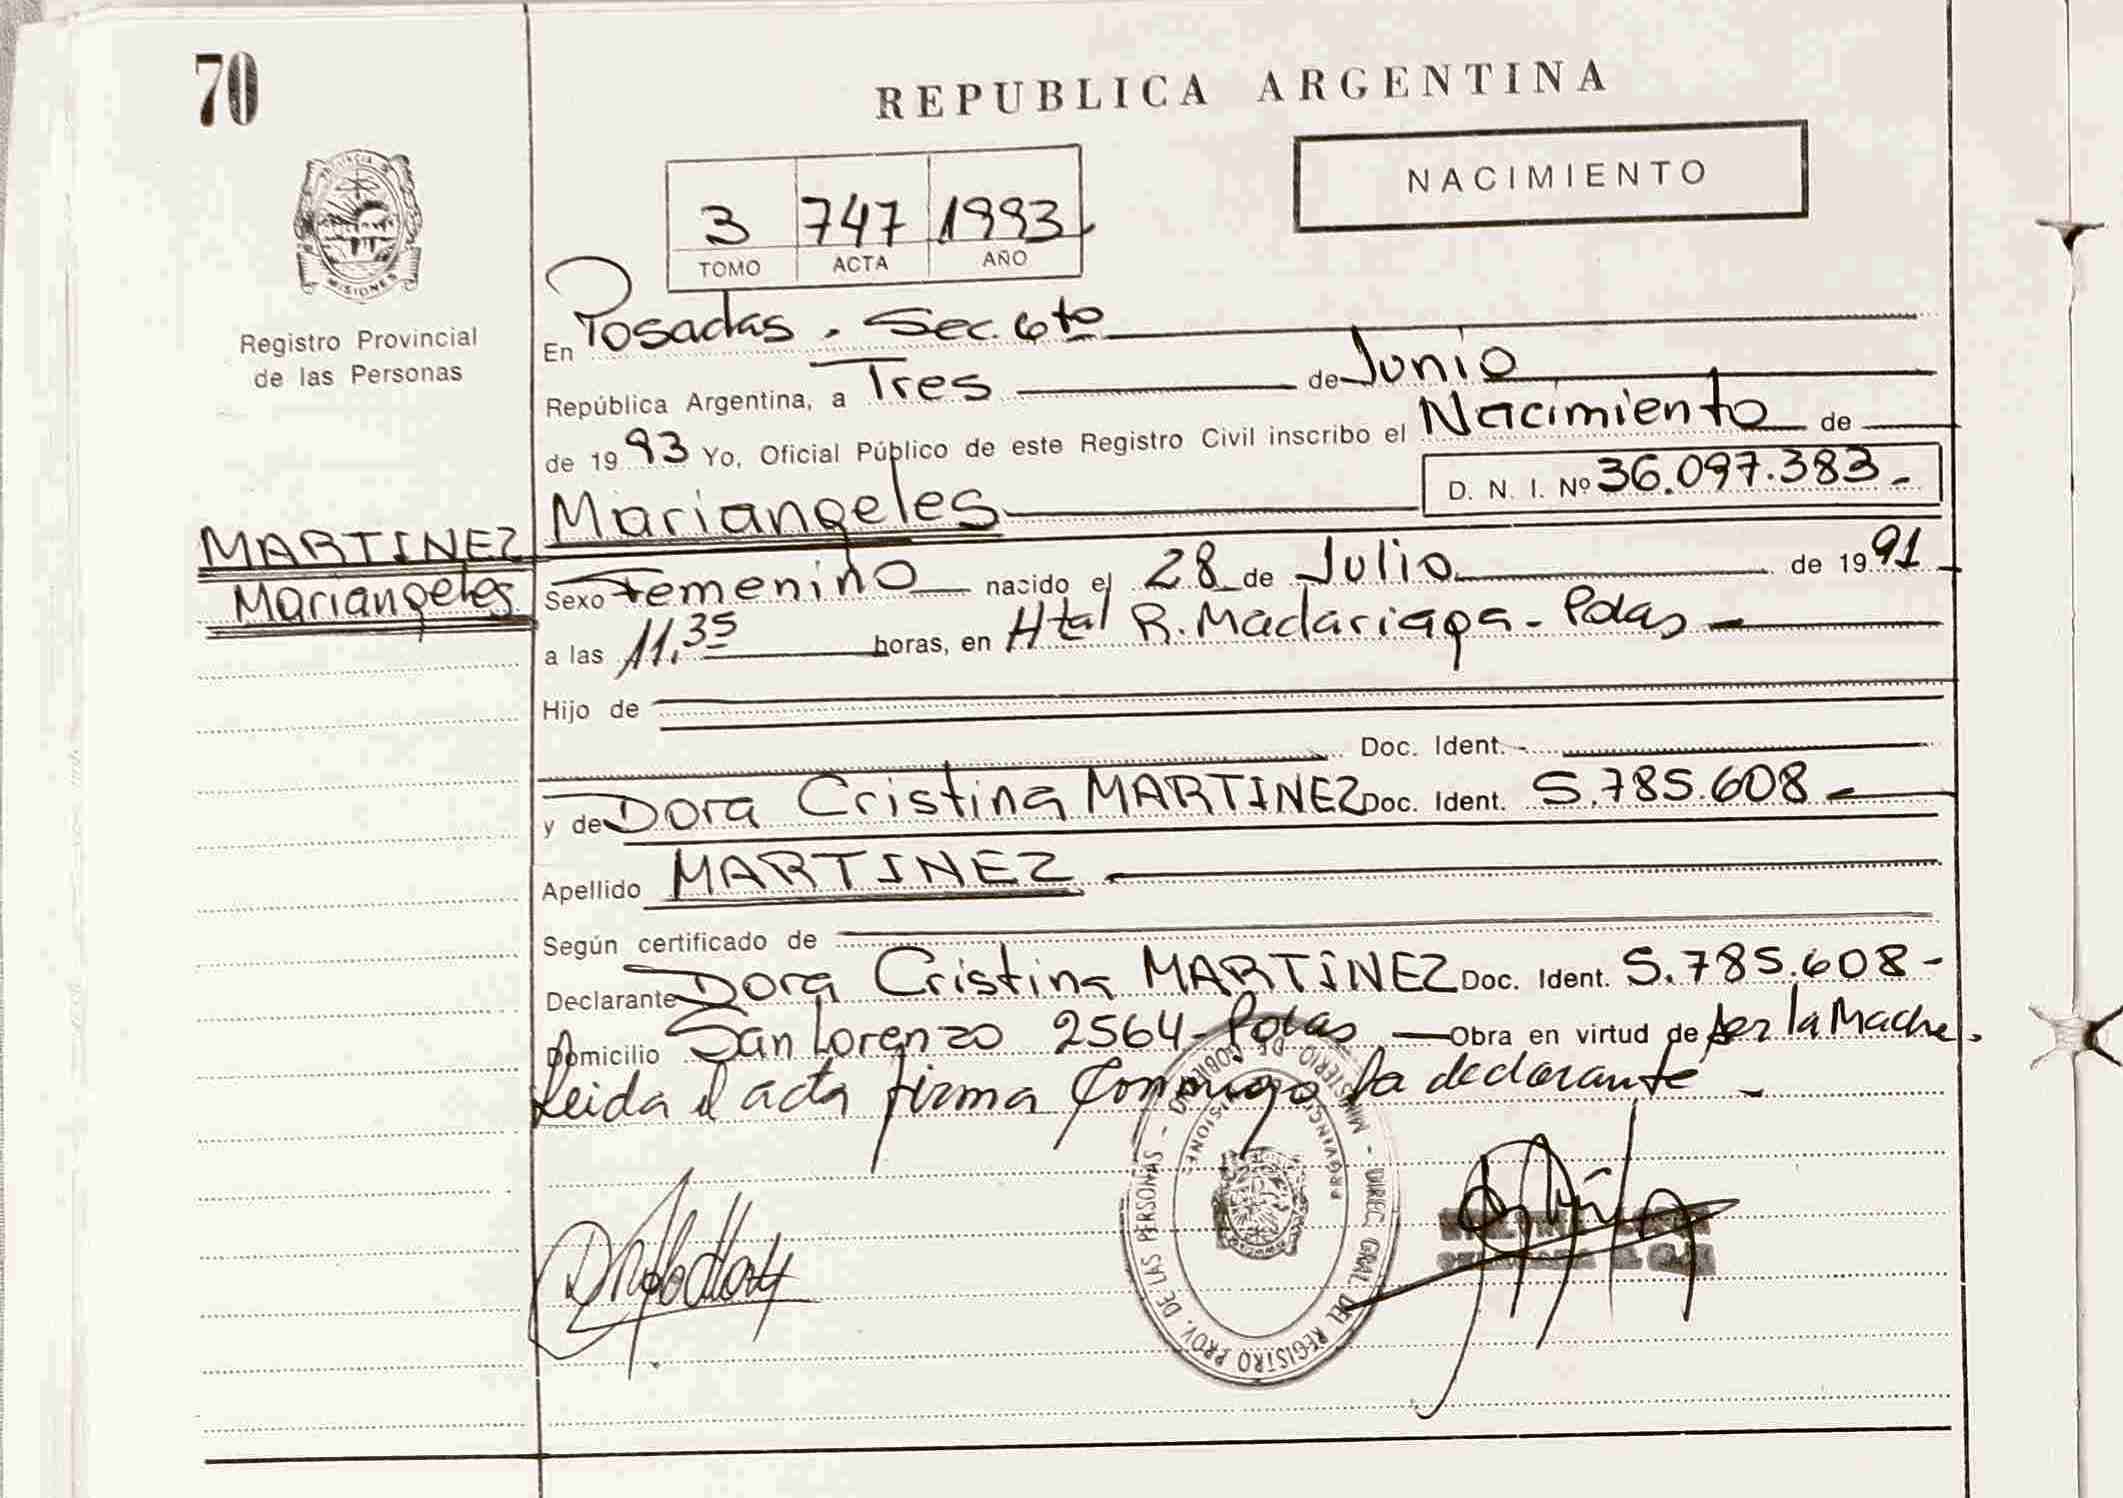 70
REPUBLICA ARGENTINA
NACIMIENTO
3 747 1993
TOMO ACTA AÑO
PROVINCIA DE
MISIONES
Registro Provincial
de las Personas
En Posadas. Sec. 6ta
República Argentina, a Tres de Junio
de 1993 Yo, Oficial Público de este Registro Civil inscribo el Nacimiento de
D. N. I. Nº 36.097.383.-
Mariangeles
MARTINEZ
Mariangeles
Sexo Femenino nacido el 28 de Julio de 1991
a las 11,35 horas, en Htal R. Madariaga - Pdas
Hijo de
Doc. Ident.
y de Dora Cristina MARTINEZ Doc. Ident. 5.785.608
Apellido MARTINEZ
Según certificado de
Declarante Dora Cristina MARTINEZ Doc. Ident. 5.785.608-
Domicilio San Lorenzo 2564 - Pdas Obra en virtud de ser la Madre.
Leida el acta firma conmigo la declarante -
MINISTERIO DE GOBIERNO - DIREC. GRAL. DEL REGISTRO PROV. DE LAS PERSONAS -
PROVINCIA MISIONES